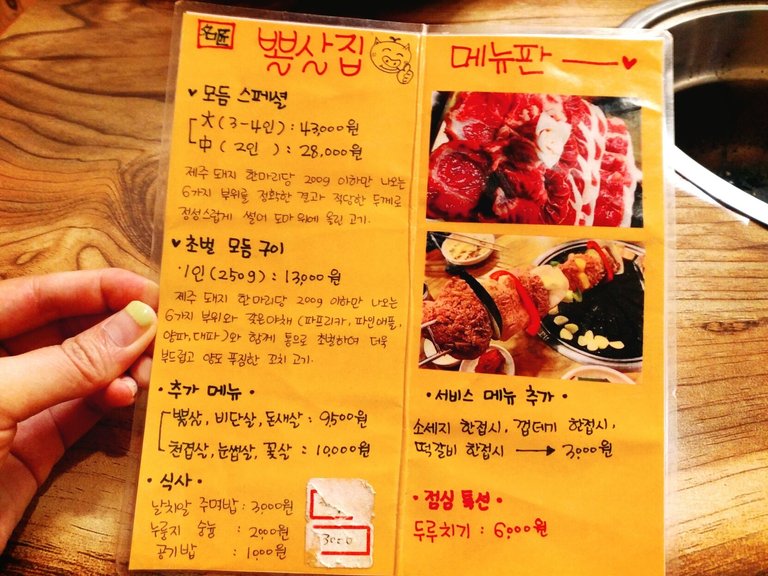 名匠 뽈살집
♥ 모듬 스페셜
大 (3-4인) : 43,000원
中 ( 2인 ) : 28,000원
제주 돼지 한마리당 200g 이하만 나오는
6가지 부위를 정확한 결과 적당한 두께로
정성스럽게 썰어 도마 위에 올린 고기.
♥ 초벌 모듬 구이
·1인 (250g) : 13,000원
제주 돼지 한마리당 200g 이하만 나오는
6가지 부위와 갖은야채 (파프리카, 파인애플,
양파, 대파)와 함께 통으로 초벌하여 더욱
부드럽고 양도 푸짐한 꼬치 고기.
· 추가 메뉴 ·
뽈살, 비단살, 돈새살 : 9,500원
천겹살, 눈썹살, 꽃살 : 10,000원
· 식사 ·
날치알 주먹밥 : 3,000원
누룽지 숭늉 : 2,000원
공기밥 : 1,000원
3000
메뉴판 ♥
· 서비스 메뉴 추가 ·
소세지 한접시, 껍데기 한접시,
떡갈비 한접시 → 3,000원
· 점심 특선 ·
두루치기 : 6,000원